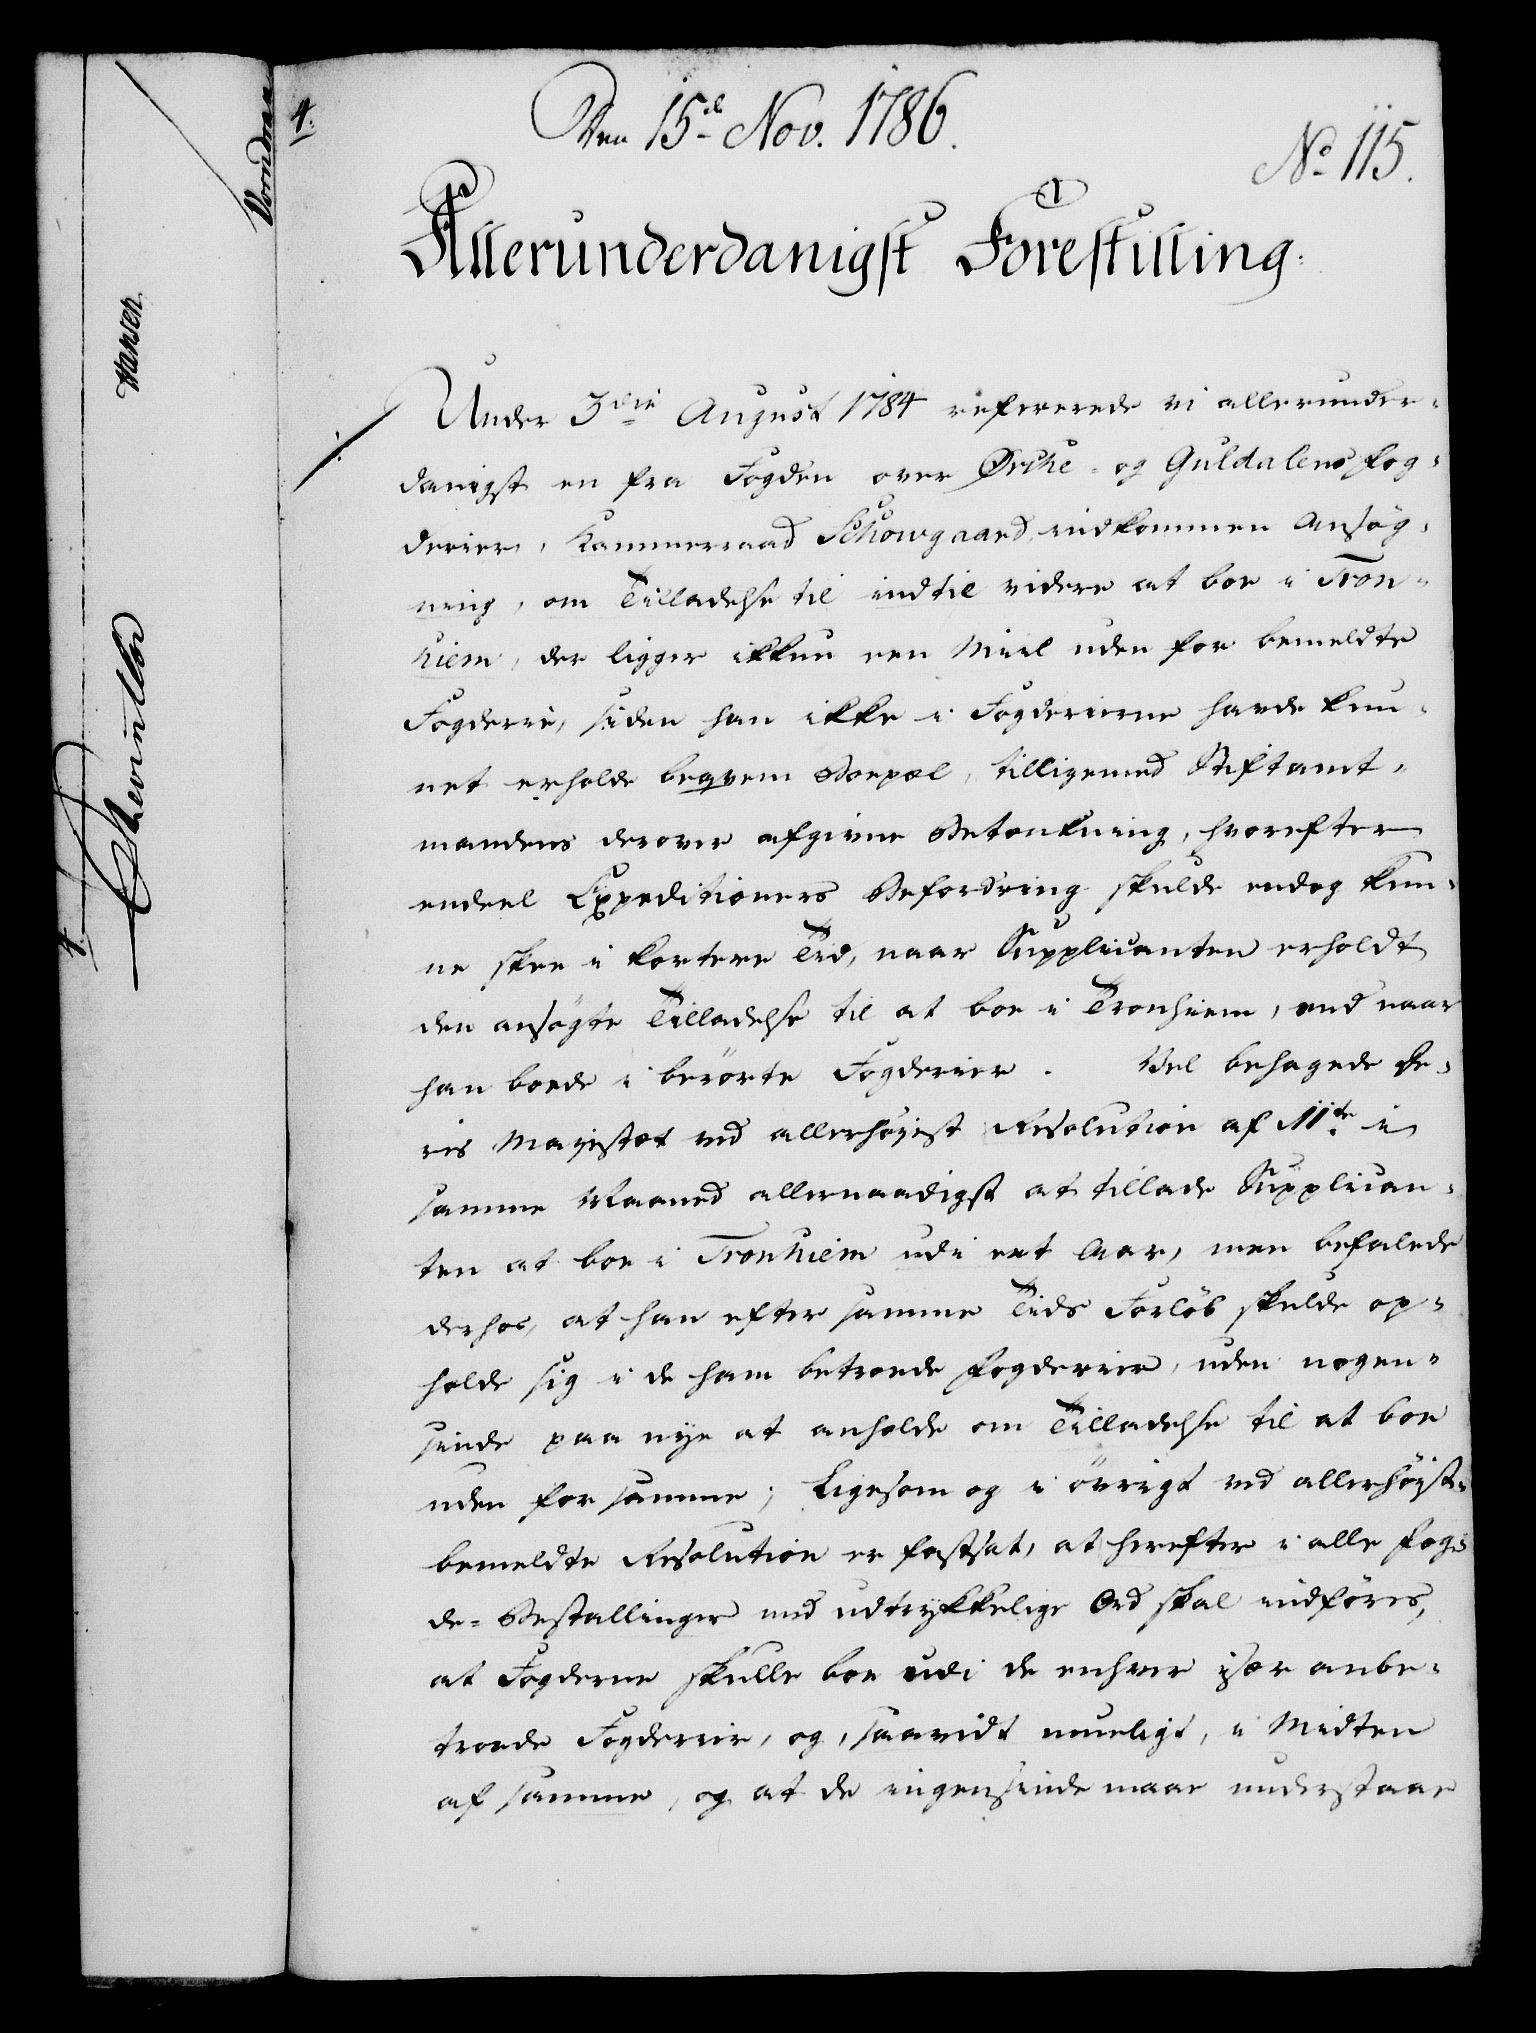 4.
Den 15de Nov. 1786.
No 115.
Allerunderdanigst Forestilling.
Under 3die August 1784 refererede vi allerunder-
danigst en fra Fogden over Örche- og Guldalens fog-
derier, Kammerraad Schowgaard, indkommen Ansøg-
ning, om Tilladelse til indtil videre at boe i Tron-
hiem, der ligger ikkun een Miil uden for bemeldte
Fogderie, siden han ikke i Fogderierne havde kun-
net erholde beqvem Boepæl, tilligemed Stiftamt-
mandens derover afgivne Betænkning, hvorefter
endeel Expeditioners Befordring skulde endog kun-
ne skee i kortere Tid, naar Supplicanten erholdt
den ansøgte Tilladelse til at boe i Tronhiem, end naar
han boede i berörte Fogderier. Vel behagede De-
res Majestæt ved allerhöjest Resolution af 11te i
samme Maaned allernaadigst at tillade Supplican-
ten at boe i Tronhiem udi eet Aar, men befalede
derhos, at han efter samme Tids Forlöb skulde op-
holde sig i de ham betroede Fogderier, uden nogen-
sinde paa nye at anholde om Tilladelse til at boe
uden for samme; Ligesom og i övrigt ved allerhöjst-
bemeldte Resolution er fastsat, at herefter i alle Fog-
de-Bestallinger med udtrykkelige Ord skal indföres,
at Fogderne skulle boe udi de enhver især anbe-
troede Fogderier, og, saavidt mueligt, i Midten
af samme, og at de ingensinde maae understaae
Hansen
4.